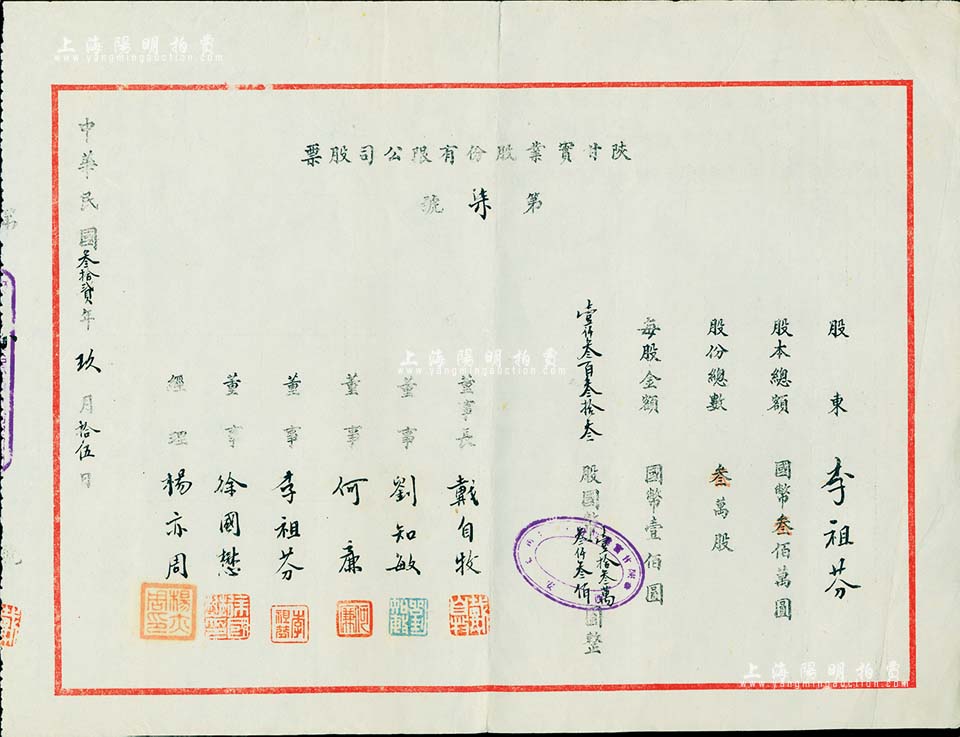 上海陽明拍賣
www.yangmingauction.com
陝甘實業股份有限公司股票
第柒號
股東 李祖芬
股本總額 國幣叁佰萬圓
股份總數 叁萬股
每股金額 國幣壹佰圓
壹仟叁百叁拾叁 股國幣壹拾叁萬叁仟叁佰圓整
董事長 戴自牧
董事 劉知敏
董事 何廉
董事 李祖芬
董事 徐國懋
經理 楊亦周
中華民國叁拾貳年玖月拾伍日
第
上海陽明拍賣
www.yangmingauction.com
上海陽明拍賣
www.yangmingauction.com